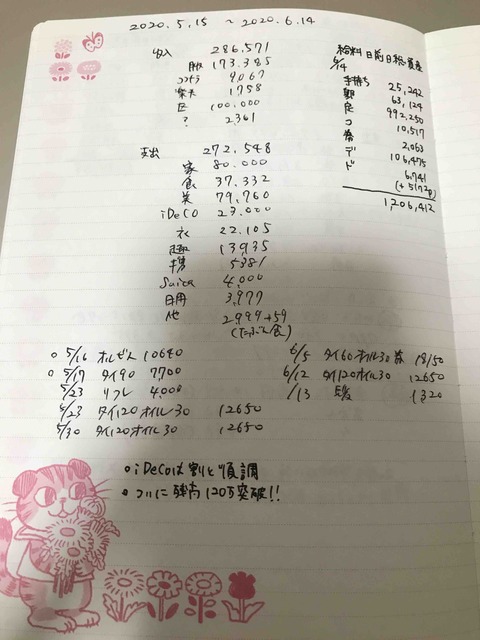 2020.5.15 ~ 2020.6.14
収入 286,571
173,385
ココナラ 9,067
楽天 1758
定 100,000
? 2361
支出 272,548
家 80,000
食 37,332
美 79,760
iDeCo 23,000
衣 22,105
趣 13,935
携 5381
Suica 4,000
日用 3,977
他 2,999+59
(たぶん食)
給料日前日総資産
6/14
手持ち 25,242
郵 63,124
定 992,250
コ 10,517
楽 2,063
デ 106,475
ド 6,741
(+5172p)
1,206,412
○ 5/16 オルゼん 10640
○ 5/17 タイ90 7,700
5/23 リフレ 4,000
5/23 タイ120オイル30 12650
5/30 タイ120オイル30 12650
6/5 タイ60オイル30 18150
6/12 タイ120オイル30 12650
/13 1,320
○iDeCoは割と順調
○ついに残高120万突破!!